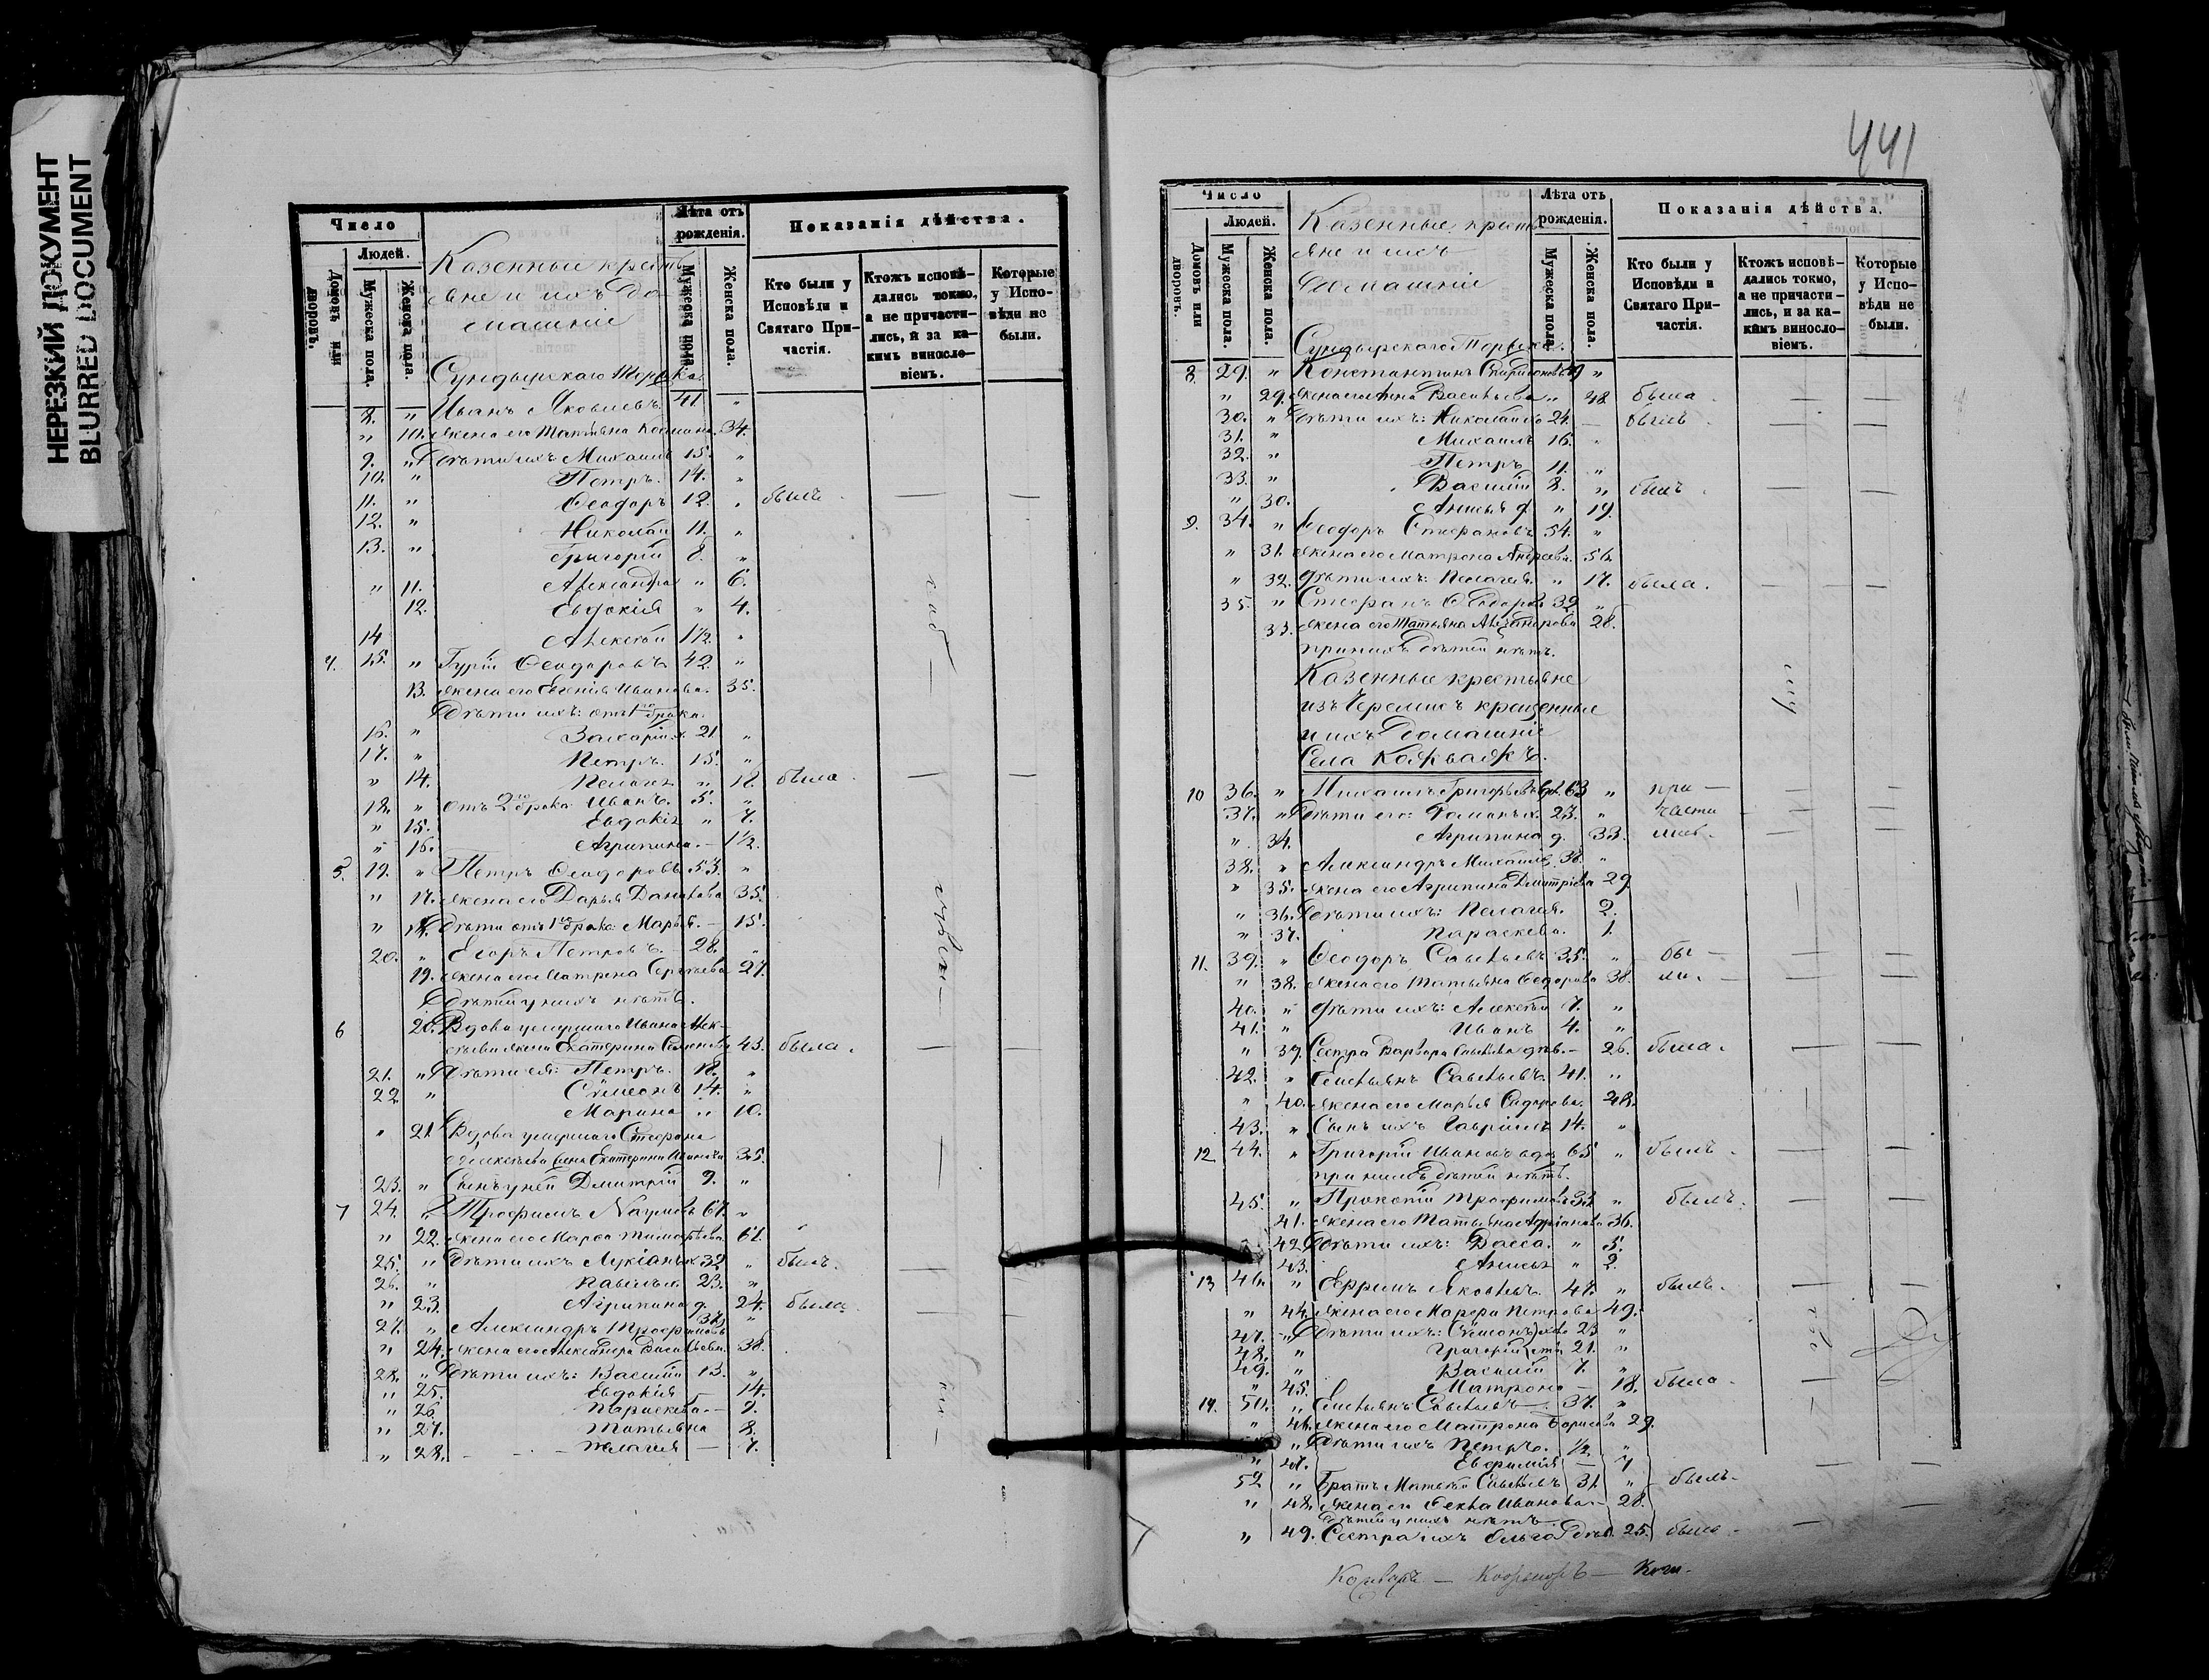 НЕРЕЗКИЙ ДОКУМЕНТ
BLURRED DOCUMENT
Число
Людей.
Домовъ или дворовъ.
Мужеска пола.
Женска пола.
Казенные кресть
яне и ихъ До-
машніе
Сундырскаго Торжка.
Лѣта отъ рожденія.
Мужеска пола.
Женска пола.
Показанія дѣйства.
Кто были у Исповѣди и Святаго При-частія.
Ктожъ исповѣ-дались токмо, а не причасти-лись, и за ка-кимъ винсло-віемъ.
Которые у Испо-вѣди не были.
8. " Иванъ Яковлевъ 41. "
" 10. Жена его Татьяна 34.
9. " Дѣти ихъ Михаилъ 15. "
10. " Петръ. 14. "
11. " Ѳеодоръ 12. " былъ. — —
12. " Николай 11. "
13. " Григорій 8. "
" 11. Александра " 6.
12. Евдокія " 4.
14 Алексѣй 1½. "
4. 15. " Гурій Ѳеодоровъ 42. "
13. Жена его Евгенія Иванова. 35.
Дѣти ихъ: отъ 1го брака.
16. " Захарій х. 21 "
17. " Петръ. 15. "
" 14. Пелагея " 18. была. — —
18. " отъ 2го брака Иванъ. 5. "
" 15. Евдокія " 7.
" 16. Агрипина. — 1½.
5. 19. " Петръ Ѳеодоровъ 53. "
" 17. Жена его Дарья Данилова 35.
" 18. Дѣти отъ 1го брака: Марья. — 15.
20. " Егоръ Петровъ. 28. "
19. Жена его Матрена Сергѣева 27.
Дѣтей у нихъ нѣтъ.
6 20. Вдова умершаго Ивана Алек-
сѣева жена Екатерина Семенова 43. была. —
21. " Дѣти ея: Петръ. 18. "
22 " Сѵмеонъ 14. "
Марина " 10.
" 21. Вдова умершаго Стефана
Алексѣева жена Екатерина Иванова 35.
23. " Сынъ у ней Дмитрій 9. "
7 24. " Трофимъ Наумовъ 67. "
" 22. Жена его Марѳа 61.
25. " Дѣти ихъ Лукіанъ х. 32 " былъ. —
26. " Павелъ х. 23. "
" 23. Агрипина д. 24. была. —
27. " Александръ Трофимовъ "
" 24. Жена его Александра Васильева 38.
28. " Дѣти ихъ: Василій 13. "
" 25. Евдокія 14.
" 26 Параскева. — 9.
" 27. Татьяна 8.
" 28. Пелагея — 7.
441
Число
Людей.
Домовъ или дворовъ.
Мужеска пола.
Женска пола.
Казенные кресть
яне и ихъ
Домашніе
Сундырскаго Торжка.
Лѣта отъ рожденія.
Мужеска пола.
Женска пола.
Показанія дѣйства.
Кто были у Исповѣди и Святаго При-частія.
Ктожъ исповѣ-дались токмо, а не причасти-лись, и за ка-кимъ винсло-віемъ.
Которые у Испо-вѣди не были.
8. 29. " Константинъ "
" 29. Жена его Анна Васильева " 48 была. — —
30. " Дѣти ихъ: Николай 21. — былъ. — —
31. " Михаилъ 16. "
32. " Петръ 11. "
33. " Василій 8. " былъ. — —
" 30. Анисья д. " 19.
9. 34. " Ѳеодоръ Стефановъ 54. "
" 31. Жена его Матрона Андреева. 56.
" 32. Дѣти ихъ: Пелагея. " 17. была. — —
35. " Стефанъ Ѳеодоровъ 32 "
33. Жена его Татьяна Александрова 28.
при нихъ дѣтей нѣтъ.
Казенные крестьяне
изъ Черемисъ крещенные
и ихъ Домашніе
Села Кожважъ.
10 36. " Михаилъ Григорьевъ вд. 63 " при — — —
37. " Дѣти его: Романъ х. 23. " части — —
" 34. Агрипина д. 33. лись. — —
38. " Александръ Михайловъ 36. "
" 35. Жена его Агрипина Дмитріева 29.
" 36. Дѣти ихъ: Пелагея. 2.
" 37. Параскева. 1.
11. 39. " Ѳеодоръ Савельевъ 35. " бы — — —
" 38. Жена его Татьяна Ѳедорова 38. ли. — — —
40. " Дѣти ихъ: Алексѣй 7. "
41. " Иванъ 4. "
" 39. Сестра Варвара дѣв. — 26. была. — —
42. " Емельянъ Савельевъ. 41. "
" 40. Жена его Марья Сидорова. 48.
43. " Сынъ ихъ Гавріилъ 14. "
12 44. " Григорій Ивановъ вдов 65 " былъ. — —
при нихъ дѣтей нѣтъ.
45. " Прокопій Трофимовъ 33 " былъ. — —
41. Жена его Татьяна Адріанова 36.
42. Дѣти ихъ: Васса. " 5.
43. Анисья " 2.
13 46. " Ефремъ Яковлевъ. 47. " былъ. — —
" 44. Жена его Марѳа Петрова 49.
47. " Дѣти ихъ: Сѵмеонъ 23 "
48. " Григорій 21. "
49. " Василій 7. "
" 45. Матрона — 18. была. —
14. 50. " Емельянъ Савельевъ — 37. "
" 46. Жена его Матрона Борисова 29.
" Дѣти ихъ Петръ. ½. "
" 47. Евфимія — 7
52 " Братъ Матвѣй Савельевъ 31. " былъ. — —
" 48. Жена его Ѳекла Иванова — 28.
Дѣтей у нихъ нѣтъ
" 49. Сестра ихъ Ольга дѣв. 25. была. —